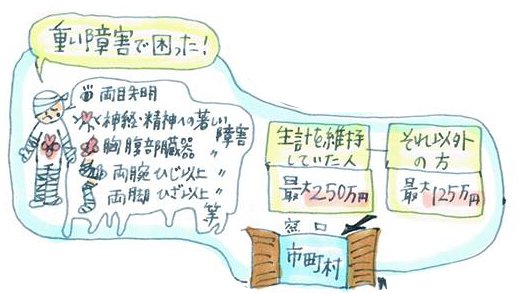 重い障害で困った!
両目失明
神経・精神への著しい障害
胸腹部臓器 〃
両腕 ひじ以上 〃
両脚 ひざ以上 〃
等
生計を維持
していた人
最大250万円
それ以外
の方
最大125万円
窓口
市町村